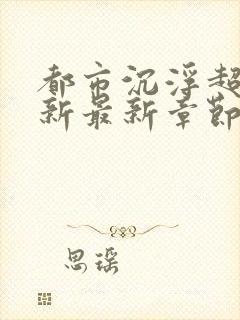 都市沉浮超
新最新章节
思瑶